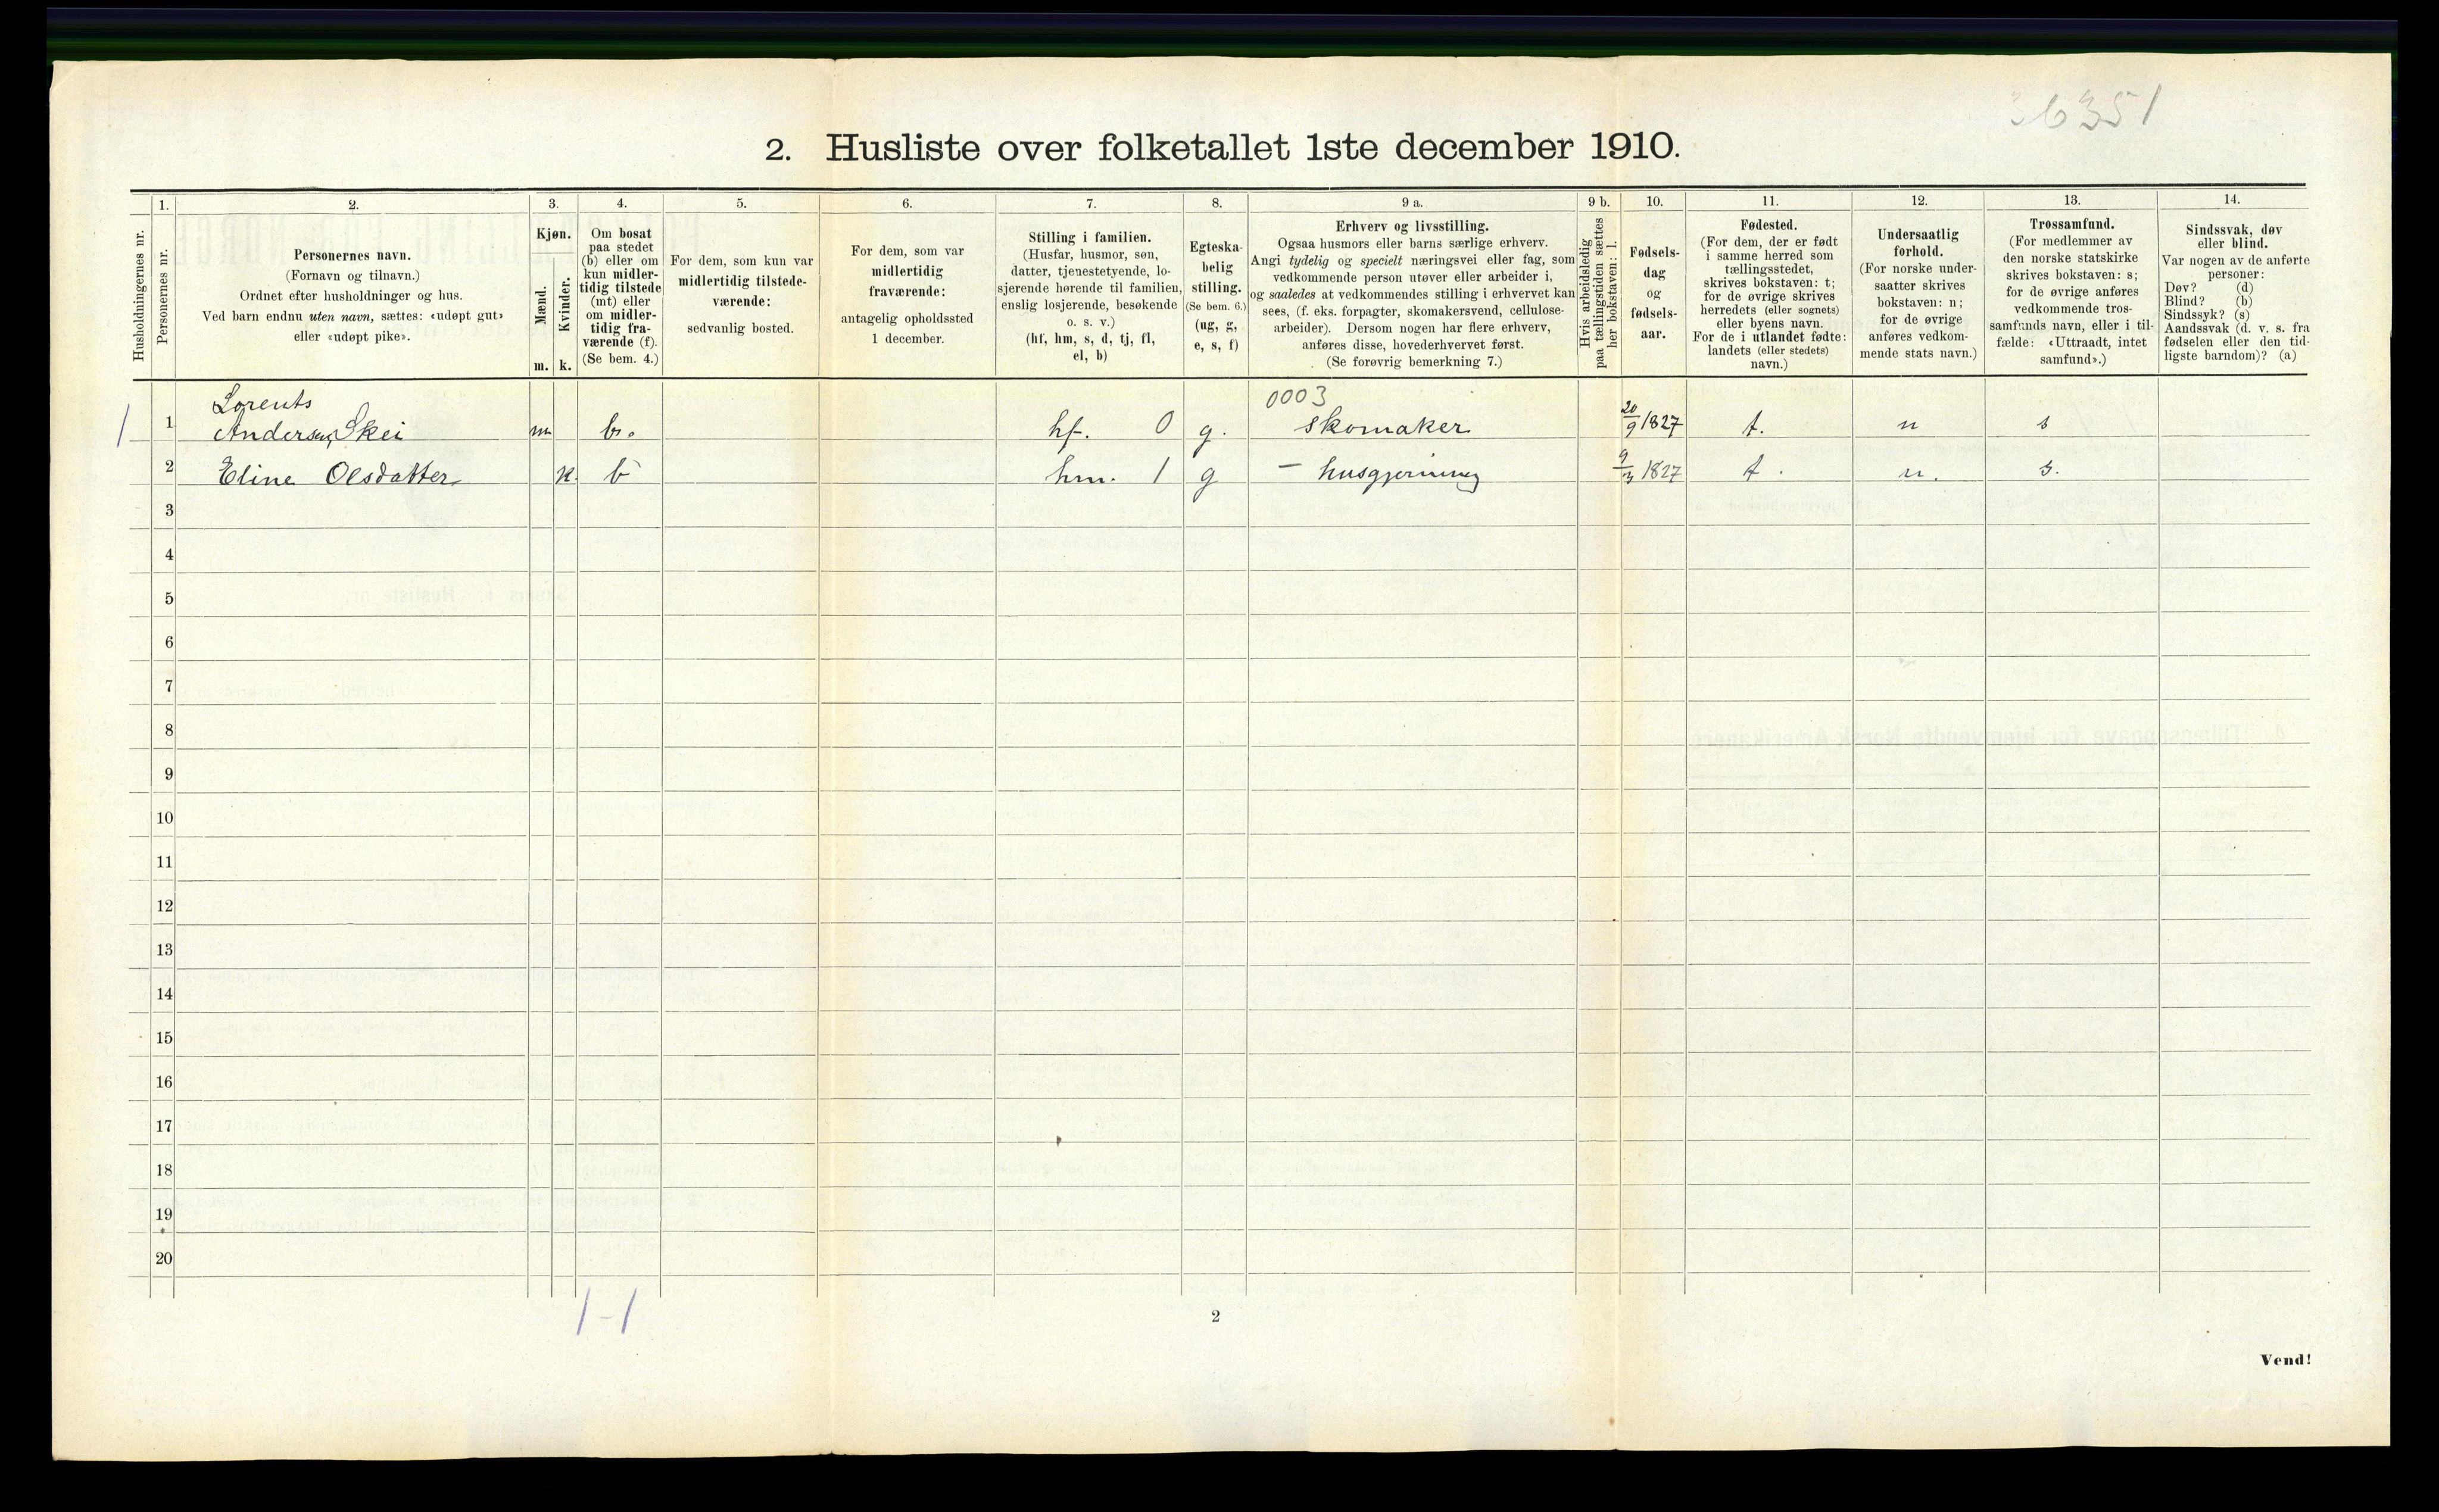 36351
2. Husliste over folketallet 1ste december 1910.
Husholdningernes nr.
1.
Personernes nr.
2.
Personernes navn.
(Fornavn og tilnavn.)
Ordnet efter husholdninger og hus.
Ved barn endnu uten navn, sættes: «udøpt gut»
eller «udøpt pike».
3.
Kjøn.
Mænd.
Kvinder.
m. k.
4.
Om bosat
paa stedet
(b) eller om
kun midler-
tidig tilstede
(mt) eller
om midler-
tidig fra-
værende (f).
(Se bem. 4.)
5.
For dem, som kun var
midlertidig tilstede-
værende:
sedvanlig bosted.
6.
For dem, som var
midlertidig
fraværende:
antagelig opholdssted
1 december.
7.
Stilling i familien.
(Husfar, husmor, søn,
datter, tjenestetyende, lo-
sjerende hørende til familien,
enslig losjerende, besøkende
o. s. v.)
(hf, hm, s, d, tj, fl,
el, b)
8.
Egteska-
belig
stilling.
(Se bem. 6.)
(ug, g,
e, s, f)
9 a.
Erhverv og livsstilling.
Ogsaa husmors eller barns særlige erhverv.
Angi tydelig og specielt næringsvei eller fag, som
vedkommende person utøver eller arbeider i,
og saaledes at vedkommendes stilling i erhvervet kan
sees, (f. eks. forpagter, skomakersvend, cellulose-
arbeider). Dersom nogen har flere erhverv,
anføres disse, hovederhvervet først.
(Se forøvrig bemerkning 7.)
9 b.
Hvis arbeidsledig
paa tællingstiden sættes
her bokstaven: l.
10.
Fødsels-
dag
og
fødsels-
aar.
11.
Fødested.
(For dem, der er født
i samme herred som
tællingsstedet,
skrives bokstaven: t;
for de øvrige skrives
herredets (eller sognets)
eller byens navn.
For de i utlandet fødte:
landets (eller stedets)
navn.)
12.
Undersaatlig
forhold.
(For norske under-
saatter skrives
bokstaven: n;
for de øvrige
anføres vedkom-
mende stats navn.)
13.
Trossamfund.
(For medlemmer av
den norske statskirke
skrives bokstaven: s;
for de øvrige anføres
vedkommende tros-
samfunds navn, eller i til-
fælde: «Uttraadt, intet
samfund».)
14.
Sindssvak, døv
eller blind.
Var nogen av de anførte
personer:
Døv? (d)
Blind? (b)
Sindssyk? (s)
Aandssvak (d. v. s. fra
fødselen eller den tid-
ligste barndom)? (a)
Lorents 0003
1 1 Andersen Skei m b. hf. 0 g. skomaker 20/9 1827 t. n s
2 Eline Olsdatter k. b hm. 1 g - husgjerning 9/3 1827 t. n. s.
3
4
5
6
7
8
9
10
11
12
13
14
15
16
17
18
19
20
1-1
2
Vend!